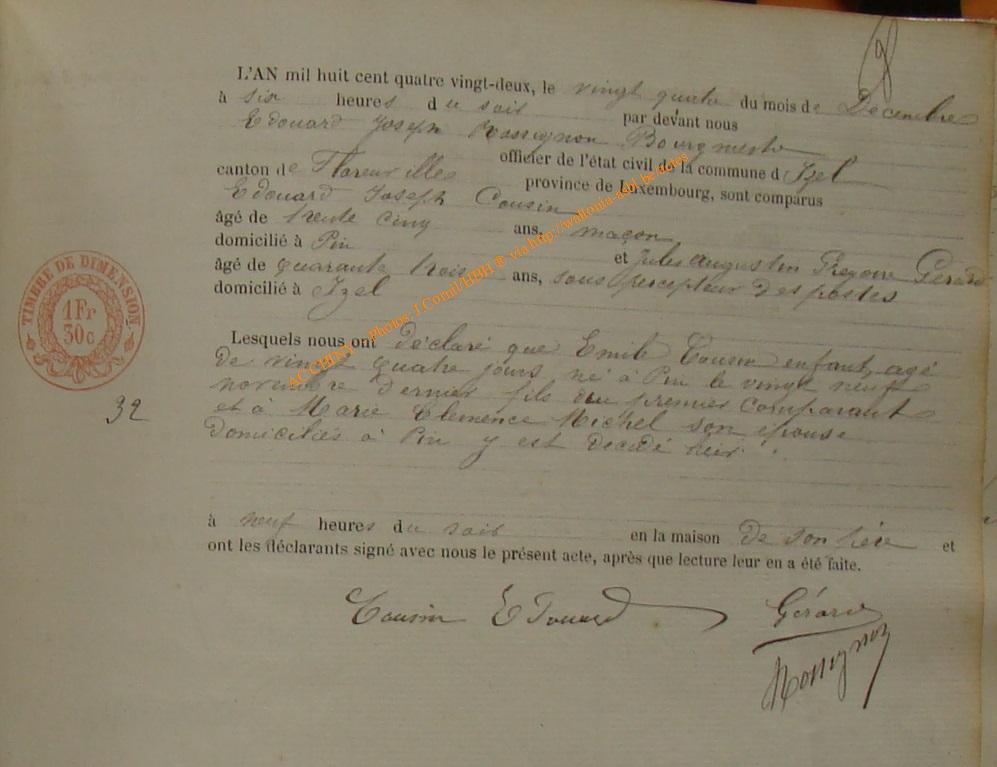 L'AN mil huit cent quatre vingt-deux, le vingt quatre du mois de Décembre
à six heures du soir par devant nous
Edouard Joseph Rossignon Bourgmestre
officier de l'état civil de la commune d Izel
canton de Florenville province de Luxembourg, sont comparus
Edouard Joseph Cousin
âgé de trente cinq ans, maçon
domicilié à Pin et Jules Augustin Grégoire Gérard
âgé de quarante trois ans, sous percepteur des postes
domicilié à Izel
Lesquels nous ont déclaré que Emile Cousin enfant, agé
de vingt quatre jours né à Pin le vingt neuf
novembre dernier fils du premier comparant
et à Marie Clemence Michel son épouse
domiciliés à Pin y est décédé hier
à neuf heures du soir en la maison de son père et
ont les déclarants signé avec nous le présent acte, après que lecture leur en a été faite.
Cousin Edouard Gérard
Rossignon
TIMBRE DE DIMENSION
1 Fr
30 c
32
ACCHINY - Photos J Cornil/HDH ® via http://waltonia-asbl.be dates